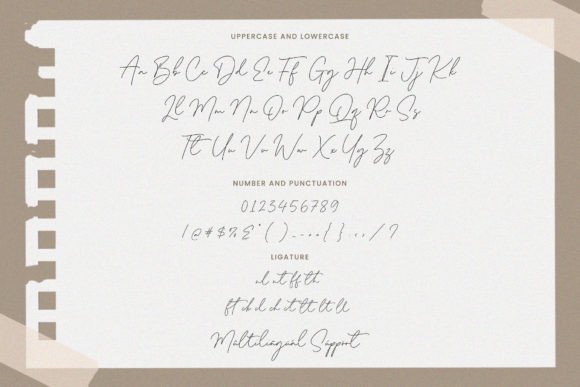 UPPERCASE AND LOWERCASE
Aa Bb Cc Dd Ee Ff Gg Hh Ii Jj Kk
Ll Mm Nn Oo Pp Qq Rr Ss
Tt Uu Vv Ww Xx Yy Zz
NUMBER AND PUNCTUATION
0123456789
! @ # $ % & * ( ) _ - + = { } : ; , / ?
LIGATURE
ff th
ft ck cl ch it tt lt ll
Multilingual Support